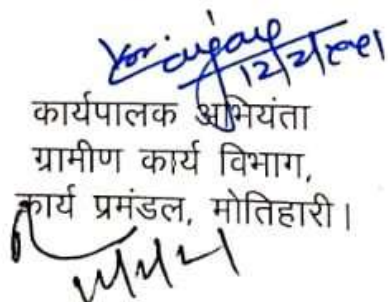 12/2/2021
कार्यपालक अभियंता
ग्रामीण कार्य विभाग,
कार्य प्रमंडल, मोतिहारी।